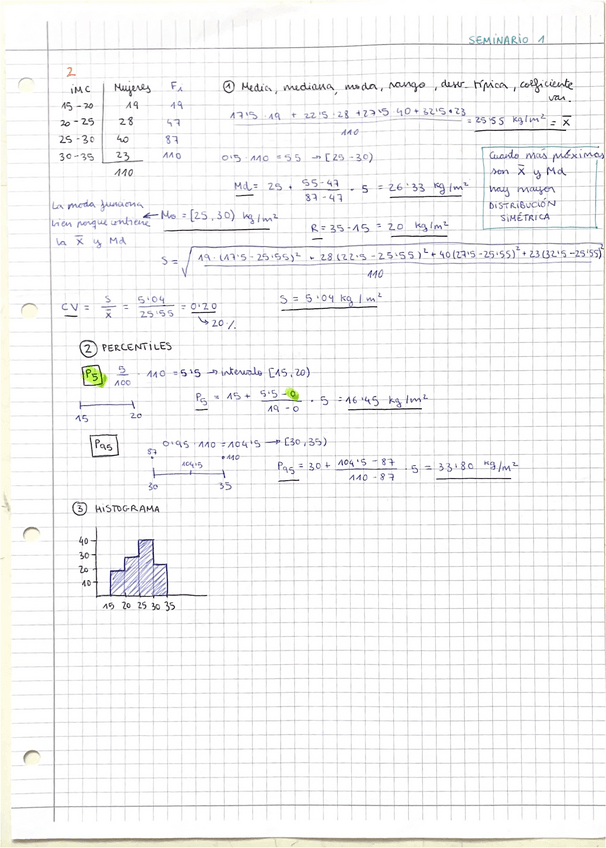 SEMINARIO 1
2
iMC Mujeres Fi
15-20 19 19
20-25 28 47
25-30 40 87
30-35 23 110
110
① Media, mediana, moda, rango, desv. típica, coeficiente var.
17'5 · 19 + 22'5 · 28 + 27'5 · 40 + 32'5 · 23 / 110 = 25'55 kg/m² = x̄
0'5 · 110 = 55 → [25-30)
Md = 25 + 55-47 / 87-47 · 5 = 26'33 kg/m²
Cuanto más próximas
son x̄ y Md
hay mayor
DISTRIBUCIÓN
SIMÉTRICA
La moda funciona
bien porque contiene ← Mo = [25,30) kg/m²
la x̄ y Md
R = 35-15 = 20 kg/m²
S = √ 19·(17'5-25'55)² + 28(22'5-25'55)² + 40(27'5-25'55)² + 23(32'5-25'55)² / 110
CV = S / x̄ = 5'04 / 25'55 = 0'20
↳ 20%
S = 5'04 kg/m²
② PERCENTILES
P5 5/100 · 110 = 5'5 → intervalo [15,20)
P5 = 15 + 5'5-0 / 19-0 · 5 = 16'45 kg/m²
15 20
P95 0'95 · 110 = 104'5 → [30,35)
87 104'5 110
30 35
P95 = 30 + 104'5-87 / 110-87 · 5 = 33'80 kg/m²
③ HISTOGRAMA
40
30
20
10
15 20 25 30 35